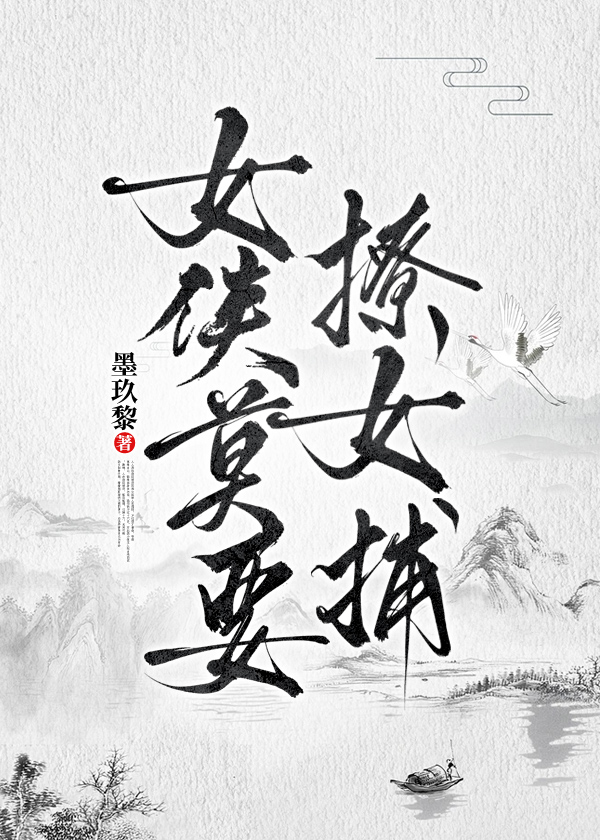 女侠莫要
撩女捕
墨玖黎 著